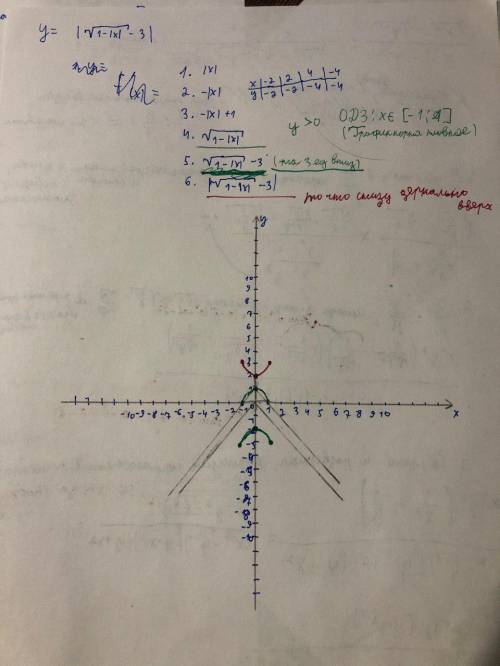 y = |√1-|x| - 3|
1. |x|
2. -|x|
x -2 2 4 -4
y -2 -2 -4 -4
3. -|x| + 1
y > 0 ОДЗ: x ∈ [-1; 1]
4. √1-|x|
5. √1-|x| - 3 (на 3 ед вниз)
6. |√1-|x| - 3|
то что снизу зеркально
вверх
y
10
9
8
7
6
5
4
3
2
-10 -9 -8 -7 -6 -5 -4 -3 -2 -1 0 1 2 3 4 5 6 7 8 9 10 x
-5
-6
-7
-8
-9
-10